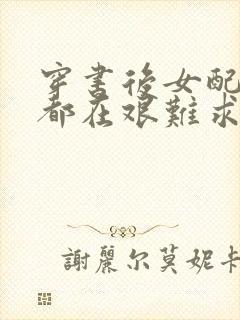 穿書後女配
都在艱難求
謝麗尔莫妮卡